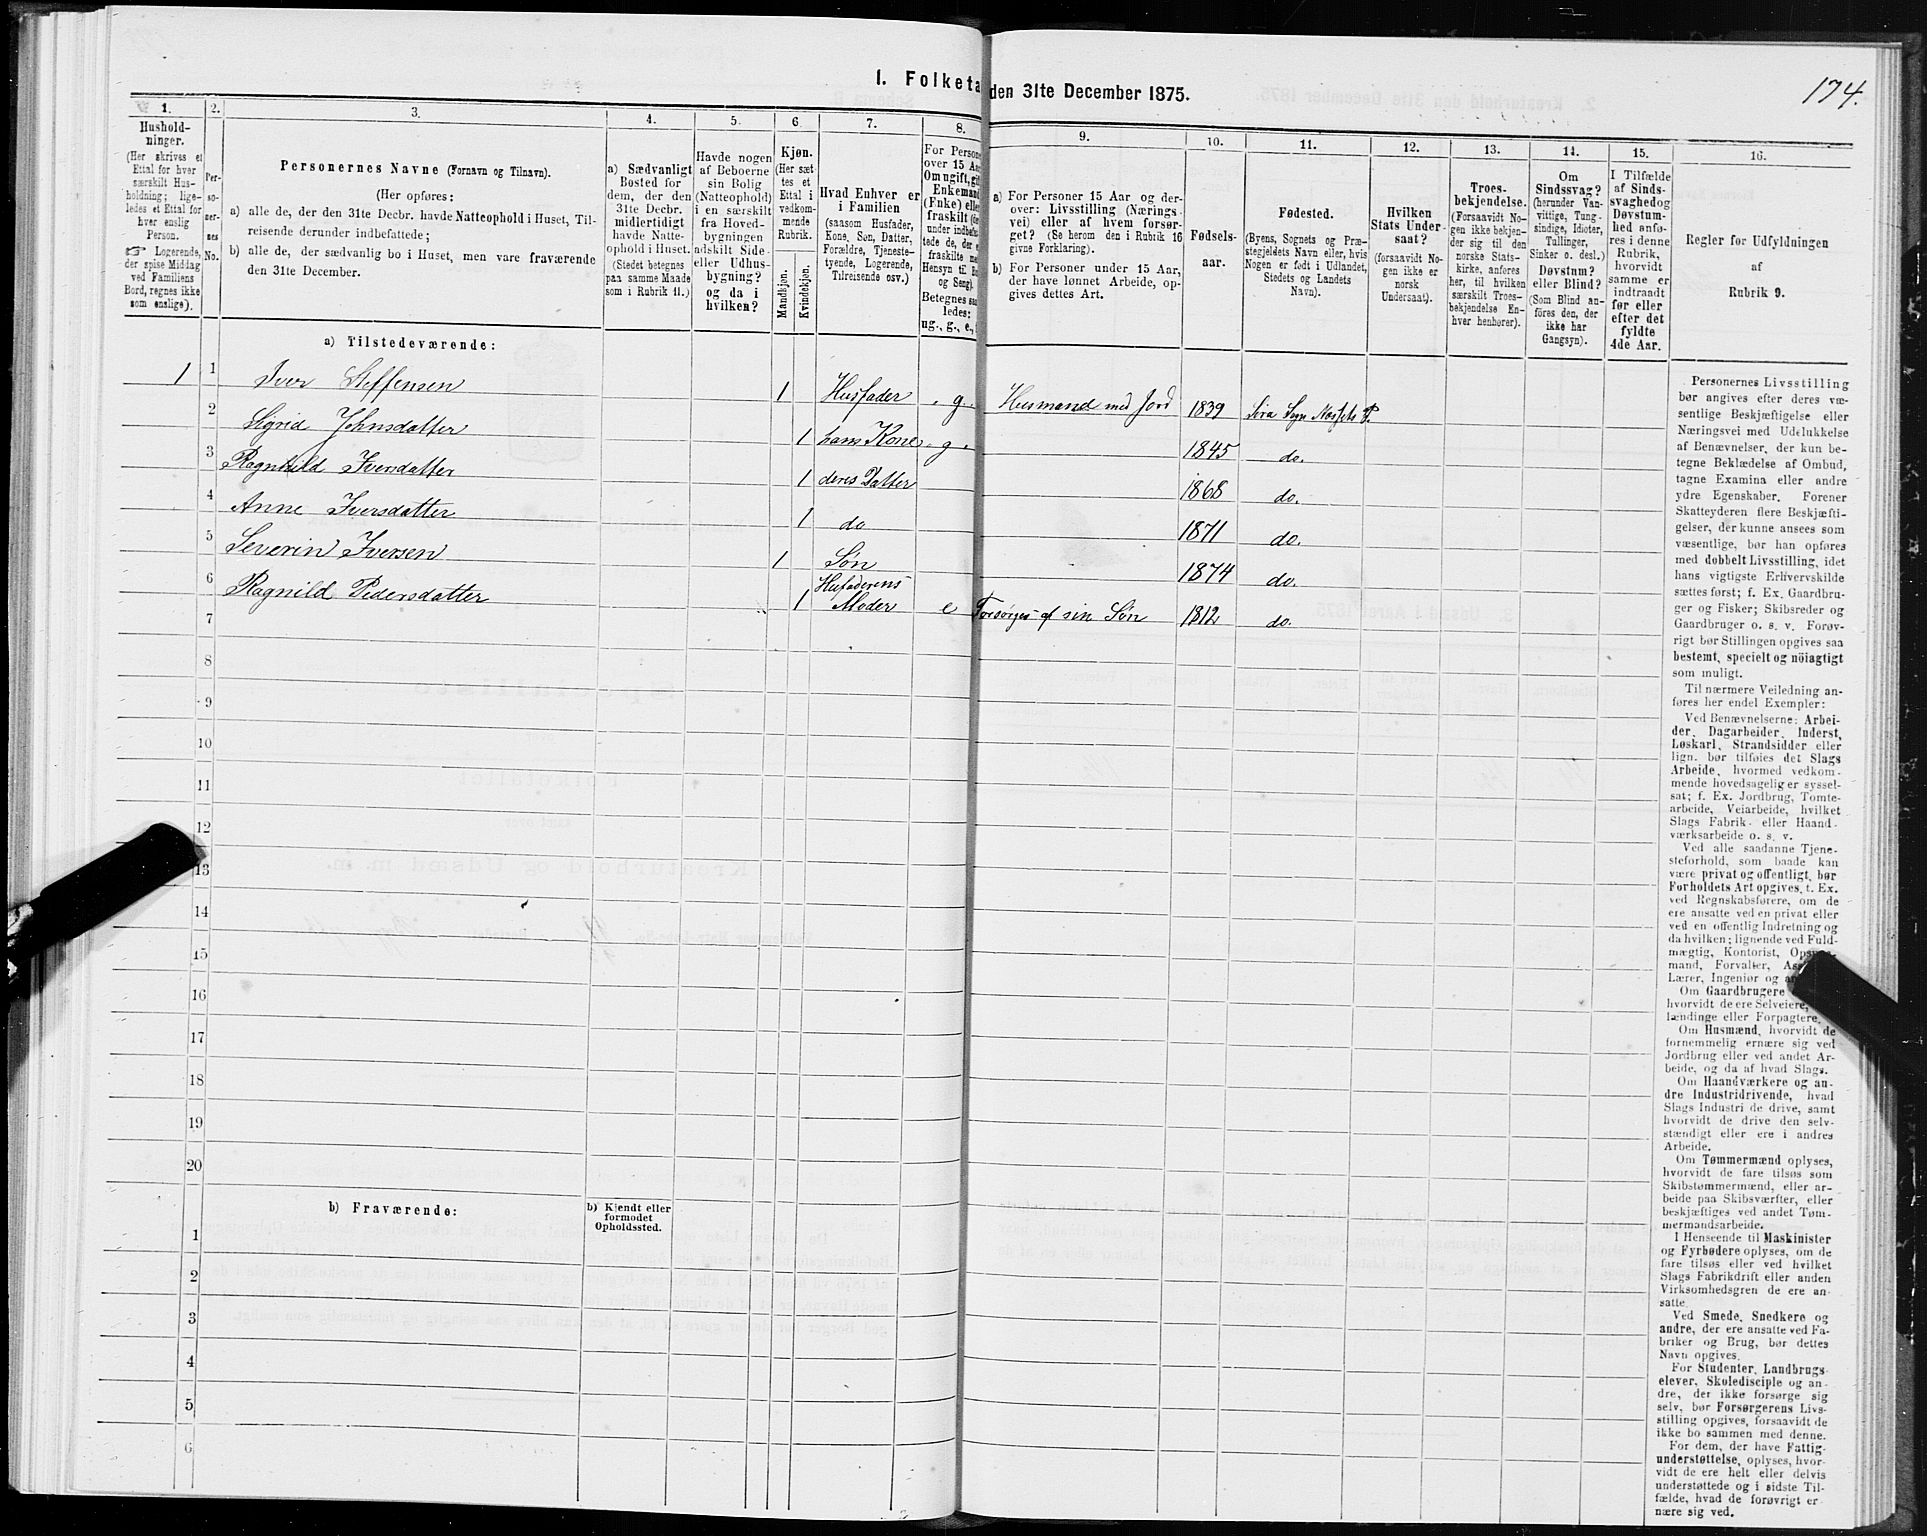 I. Folketa den 31te December 1875.
174.
1.
Hushold-
ninger.
(Her skrives et
Ettal for hver
særskilt Hus-
holdning; lige-
ledes et Ettal for
hver enslig
Person.
☞ Logerende,
der spise Middag
ved Familiens
Bord, regnes ikke
som enslige).
2.
Per-
so-
ner-
nes
No.
3.
Personernes Navne (Fornavn og Tilnavn).
(Her opføres:
a) alle de, der den 31te Decbr. havde Natteophold i Huset, Til-
reisende derunder indbefattede;
b) alle de, der sædvanlig bo i Huset, men vare fraværende
den 31te December.
4.
a) Sædvanligt
Bosted for
dem, der den
31te Decbr.
midlertidigt
havde Natte-
ophold i Huset.
(Stedet betegnes
paa samme Maade
som i Rubrik 11.)
5.
Havde nogen
af Beboerne
sin Bolig
(Natteophold)
i en særskilt
fra Hoved-
bygningen
adskilt Side-
eller Udhus-
bygning?
og da i
hvilken?
6.
Kjøn.
(Her sæt-
tes et
Ettal i
vedkom-
mende
Rubrik.
Mandkjøn.
Kvindekjøn.
7.
Hvad Enhver er
i Familien
(saasom Husfader,
Kone, Søn, Datter,
Forældre, Tjeneste-
tyende, Logerende,
Tilreisende osv.)
8.
For Persone
over 15 Aa
Om ugift, gif
Enkeman
(Enke) elle
fraskilt
under indbefa
tede de, der e
fraskilte me
Hensyn til Bo
og Seng).
Betegnes saa
ledes:
ug., g., e.,
9.
a) For Personer 15 Aar og der-
over: Livsstilling (Nærings-
vei) eller af hvem forsør-
get? (Se herom den i Rubrik 16
givne Forklaring).
b) For Personer under 15 Aar,
der have lønnet Arbeide, op-
gives dettes Art.
10.
Fødsels-
aar.
11.
Fødested.
(Byens, Sognets og Præ-
stegjeldets Navn eller, hvis
Nogen er født i Udlandet,
Stedets og Landets
Navn).
12.
Hvilken
Stats Under-
saat?
(forsaavidt No-
gen ikke er
norsk
Undersaat).
13.
Troes-
bekjendelse.
(Forsaavidt No-
gen ikke bekjen-
der sig til den
norske Stats-
kirke, anføres
her, til hvilken
særskilt Troes-
bekjendelse En-
hver henhører).
14.
Om
Sindssvag?
(herunder Van-
vittige, Tung-
sindige, Idioter,
Tullinger,
Sinker o. desl.)
Døvstum?
eller Blind?
(Som Blind an-
føres den, der
ikke har
Gangsyn).
15.
I Tilfælde
af Sinds-
svaghed og
Døvstum-
hed anfø-
res i denne
Rubrik,
hvorvidt
samme er
indtraadt
før eller
efter det
fyldte
4de Aar.
16.
Regler for Udfyldningen
af
Rubrik 9.
a) Tilstedeværende:
1 1 Iver Steffensen 1 Husfader g. Husmand med Jord 1839 Sira Sogn Nessets P.
2 Sigrid Johnsdatter 1 hans Kone g 1845 do.
3 Ragnhild Iversdatter 1 deres Datter 1868 do.
4 Anne Iversdatter 1 do 1871 do.
5 Severin Iversen 1 Søn 1874 do.
6 Ragnild Pedersdatter 1 Husfaderens Moder e Forsørges af sin Søn 1812 do.
7
8
9
10
11
12
13
14
15
16
17
18
19
20
b) Fraværende:
b) Kjendt eller
formodet
Opholdssted.
1
2
3
4
5
6
Personernes Livsstilling
bør angives efter deres væ-
sentlige Beskjæftigelse eller
Næringsvei med Udelukkelse
af Benævnelser, der kun be-
tegne Beklædelse af Ombud,
tagne Examina eller andre
ydre Egenskaber. Forener
Skatteyderen flere Beskjæfti-
gelser, der kunne ansees som
væsentlige, bør han opføres
med dobbelt Livsstilling, idet
hans vigtigste Erhvervskilde
sættes først; f. Ex. Gaardbru-
ger og Fisker; Skibsreder og
Gaardbruger o. s. v. Forøv-
rigt bør Stillingen opgives saa
bestemt, specielt og nöiagtigt
som muligt.
Til nærmere Veiledning an-
føres her endel Exempler:
Ved Benævnelserne: Arbei-
der, Dagarbeider, Inderst,
Løskarl, Strandsidder eller
lign. bør tilføies det Slags
Arbeide, hvormed vedkom-
mende hovedsagelig er syssel-
sat; f. Ex. Jordbrug, Tomte-
arbeide, Veiarbeide, hvilket
Slags Fabrik- eller Haand-
værksarbeide o. s. v.
Ved alle saadanne Tjene-
steforhold, som baade kan
være privat og offentligt, bør
Forholdets Art opgives, t. Ex.
ved Regnskabsførere, om de
ere ansatte ved en privat eller
ved en offentlig Indretning og
da hvilken; lignende ved Fuld-
mægtig, Kontorist, Opsyns-
mand, Forvalter, As
Lærer, Ingeniør og
Om Gaardbrugere
hvorvidt de ere Selveiere,
lændinge eller Forpagtere.
Om Husmænd, hvorvidt de
fornemmelig ernære sig ved
Jordbrug eller ved andet Ar-
beide, og da af hvad Slags.
Om Haandværkere og an-
dre Industridrivende, hvad
Slags Industri de drive, samt
hvorvidt de drive den selv-
stændigt eller ere i andres
Arbeide.
Om Tømmermænd oplyses,
hvorvidt de fare tilsøs som
Skibstømmermænd, eller ar-
beide paa Skibsværfter, eller
beskjæftiges ved andet Tøm-
mermandsarbeide.
I Henseende til Maskinister
og Fyrbødere oplyses, om de
fare tilsøs eller ved hvilket
Slags Fabrikdrift eller anden
Virksomhedsgren de ere an-
satte.
Ved Smede, Snedkere og
andre, der ere ansatte ved Fa-
briker og Brug, bør dettes
Navn opgives.
For Studenter, Landbrugs-
elever, Skoledisciple og an-
dre, der ikke forsørge sig
selv, bør Forsørgerens Livs-
stilling opgives, forsaavidt de
ikke bo sammen med denne.
For dem, der have Fattig-
understøttelse, oplyses, hvor-
vidt de ere helt eller delvis
understøttede og i sidste Til-
fælde, hvad de forøvrigt er-
nære sig ved.